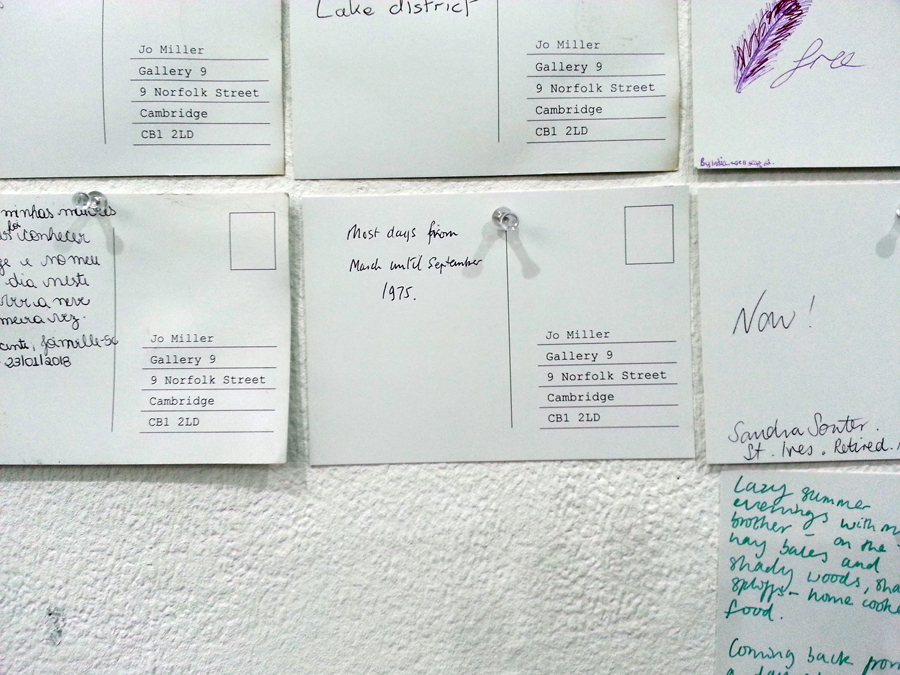 Jo Miller
Gallery 9
9 Norfolk Street
Cambridge
CB1 2LD
Lake district
Jo Miller
Gallery 9
9 Norfolk Street
Cambridge
CB1 2LD
free
minhas
conhecer
e o meu
dia neste
a neve
23/01/2018
Jo Miller
Gallery 9
9 Norfolk Street
Cambridge
CB1 2LD
Most days from
March until September
1975.
Jo Miller
Gallery 9
9 Norfolk Street
Cambridge
CB1 2LD
Now!
Sandra Souter.
St. Ives. Retired.
Lazy summer
evenings with
brother - on the
hay bales and
shady woods,
spliffs - home
food.
Coming back from